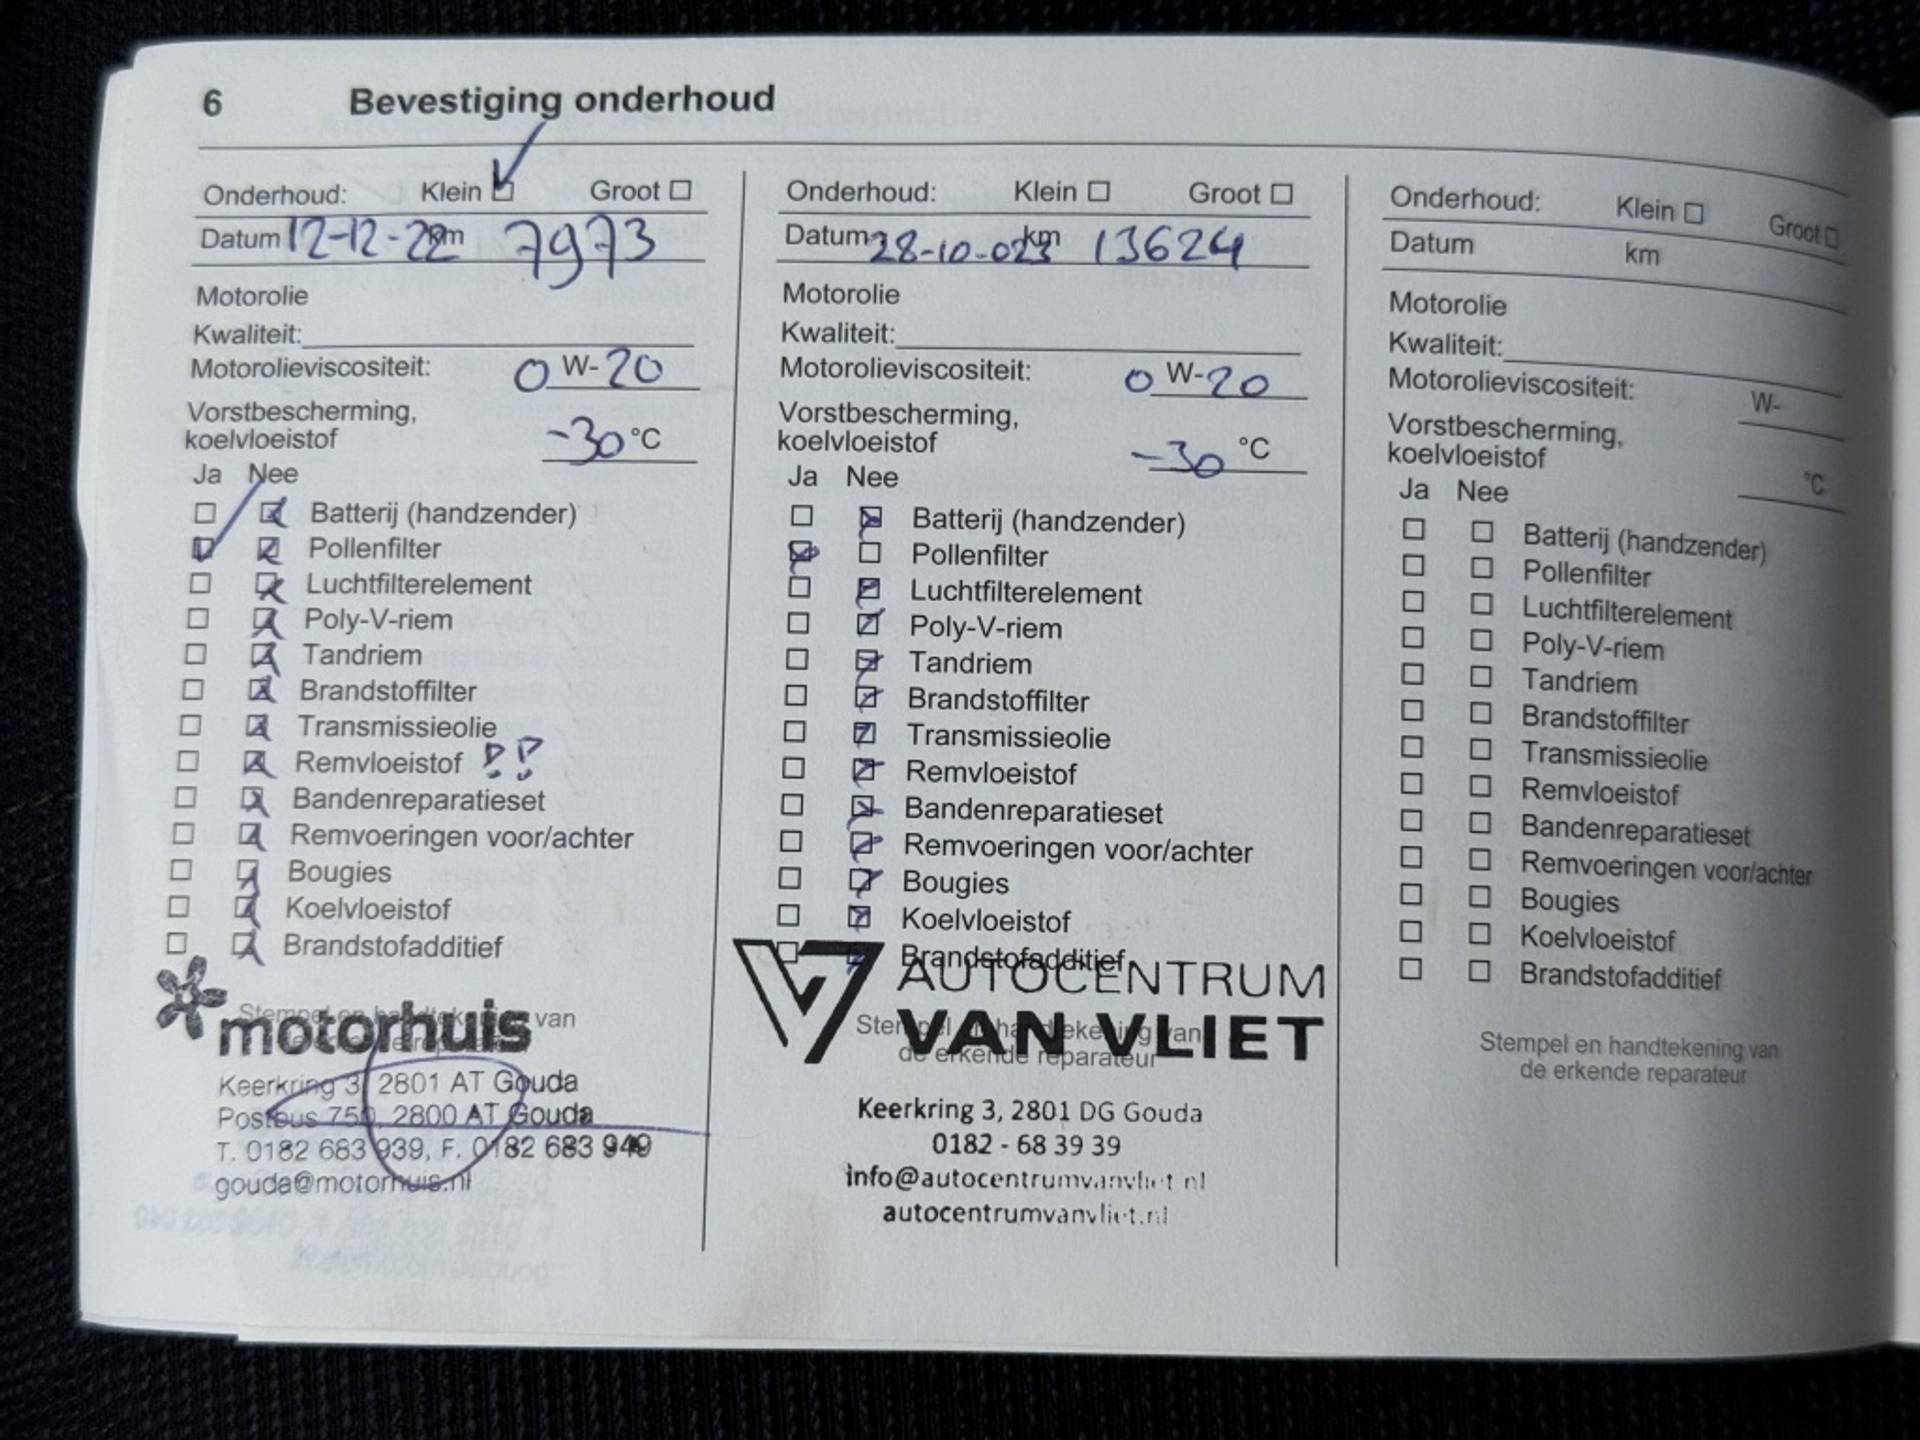 6 Bevestiging onderhoud
Onderhoud: Klein Groot
Datum 12-12-22 km 7973
Motorolie
Kwaliteit:
Motorolieviscositeit: 0 W- 20
Vorstbescherming,
koelvloeistof -30 °C
Ja Nee
Batterij (handzender)
Pollenfilter
Luchtfilterelement
Poly-V-riem
Tandriem
Brandstoffilter
Transmissieolie
Remvloeistof !!
Bandenreparatieset
Remvoeringen voor/achter
Bougies
Koelvloeistof
Brandstofadditief
Stempel en handtekening van
motorhuis
Keerkring 3, 2801 AT Gouda
Postbus 750, 2800 AT Gouda
T. 0182 683 939, F. 0182 683 949
gouda@motorhuis.nl
Onderhoud: Klein Groot
Datum 28-10-023 km 13624
Motorolie
Kwaliteit:
Motorolieviscositeit: 0 W- 20
Vorstbescherming,
koelvloeistof -30 °C
Ja Nee
Batterij (handzender)
Pollenfilter
Luchtfilterelement
Poly-V-riem
Tandriem
Brandstoffilter
Transmissieolie
Remvloeistof
Bandenreparatieset
Remvoeringen voor/achter
Bougies
Koelvloeistof
Brandstofadditief
AUTOCENTRUM
VAN VLIET
Stempel en handtekening van
de erkende reparateur
Keerkring 3, 2801 DG Gouda
0182 - 68 39 39
info@autocentrumvanvliet.nl
autocentrumvanvliet.nl
Onderhoud: Klein Groot
Datum km
Motorolie
Kwaliteit:
Motorolieviscositeit: W-
Vorstbescherming,
koelvloeistof °C
Ja Nee
Batterij (handzender)
Pollenfilter
Luchtfilterelement
Poly-V-riem
Tandriem
Brandstoffilter
Transmissieolie
Remvloeistof
Bandenreparatieset
Remvoeringen voor/achter
Bougies
Koelvloeistof
Brandstofadditief
Stempel en handtekening van
de erkende reparateur